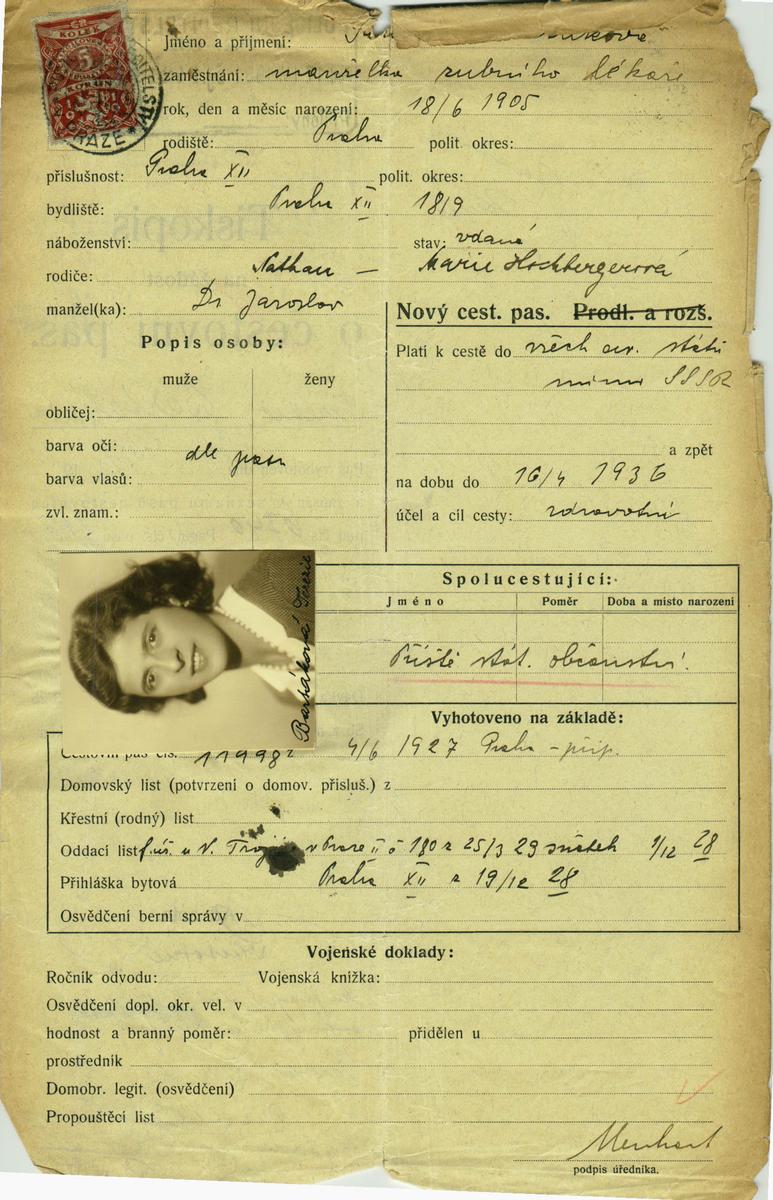 KOLEK
5
KORUN
PRAZE
Jméno a příjmení:
zaměstnání: manželka zubního lékaře
rok, den a měsíc narození: 18/6 1905
rodiště: Praha polit. okres:
příslušnost: Praha XII polit. okres:
bydliště: Praha XII 1819
náboženství: stav: vdaná
rodiče: Nathan — Marie Hochbergerová
manžel(ka): Dr Jaroslav
Nový cest. pas. Prodl. a rozš.
Popis osoby:
Platí k cestě do všech ev. států
muže ženy
mimo SSSR
obličej:
barva očí:
a zpět
dle pasu
barva vlasů:
na dobu do 16/4 1936
zvl. znam.:
účel a cíl cesty: zdravotní
Spolucestující:
Jméno Poměr Doba a místo narození
Příště stát. občanství.
Bartáková Terezie
Vyhotoveno na základě:
Cestovní pas čís. 11998 z 4/6 1927 Praha - přip.
Domovský list (potvrzení o domov. přísluš.) z
Křestní (rodný) list
Oddací list f. ú. u N. Troj v Praze II č 180 z 25/3 29 sňatek 1/12 28
Přihláška bytová Praha XII z 19/12 28
Osvědčení berní správy v
Vojenské doklady:
Ročník odvodu: Vojenská knížka:
Osvědčení dopl. okr. vel. v
hodnost a branný poměr: přidělen u
prostředník
Domobr. legit. (osvědčení)
Propouštěcí list
Menhart
podpis úředníka.